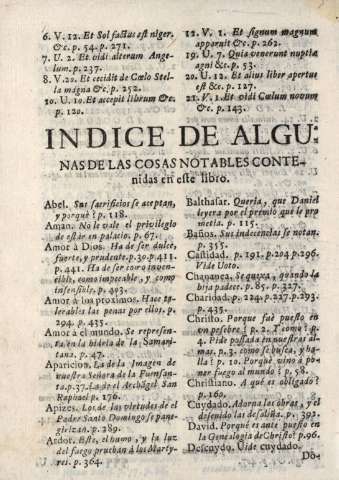 6. V. 12. Et Sol factus est niger.
&c. p. 54. p. 271.
7. U. 2. Et vidi alterum Ange-
lum. p. 237.
8. V. 22. Et cecidit de Cœlo Stel-
la magna &c. p. 252.
10. U. 10. Et accepit librum &c.
p. 120.
12. V. 1. Et signum magnum
apparuit &c. p. 262.
19. U. 7. Quia venerunt nuptiæ
agni &c. p. 53.
20. U. 12. Et alius liber apertus
est &c. p. 127.
21. V. 1. Et vidi Cœlum novum
&c. p. 143.
INDICE DE ALGU-
NAS DE LAS COSAS NOTABLES CONTE-
nidas en este libro.
Abel. Sus sacrificios se aceptan,
y porquè? p. 118.
Aman. No le vale el privilegio
de estár en palacio. p. 67.
Amor à Dios. Ha de ser dulce,
fuerte, y prudente. p. 30. p. 411.
p. 441. Ha de ser como
como impecable, y como
insensible, p. 403.
Amor à los proximos. Hace to-
lerables las penas por ellos. p.
294. p. 435.
Amor à el mundo. Se represen-
ta en la hidria de la Samari-
tana. p. 47.
Aparicion. La de la Imagen de
nuestra Señora de la Fuensan-
ta. p. 37. La de el Archãgel San
Raphael p. 176.
Apizes. Los de las virtudes de el
Padre Santo Domingo se pane-
girizan. p. 289.
Ardor. Este, el humo, y la luz
del fuego prueban á los Marty-
res. p. 364.
Balthasar. Queria, que Daniel
leyera por el premio que le pro
metia. p. 115.
Baños. Sus indecencias se notan.
p. 355.
Castidad. p. 191. p. 204 p. 296.
Vide Voto.
Chananea. Se quexa, quando la
hija padece. p. 85. p. 327.
Charidad. p. 224. p. 227. p. 293.
p. 435.
Christo. Porque fuè puesto en
vn pesebre? p. 2. Y como? p.
4. Pide possada en nuestras al-
mas. p. 3. como se busca, y ha-
lla? p. 10. Porquè vino á po-
ner fuego al mundo? p. 58.
Christiano. A què es obligado?
p. 160.
Cuydado. Adorna las obras, y el
defenido las desaliña. p. 392.
David. Porquè es ante puesto en
la Genealogia de Christo? p. 96.
Descuydo. Vide cuydado.
Do-